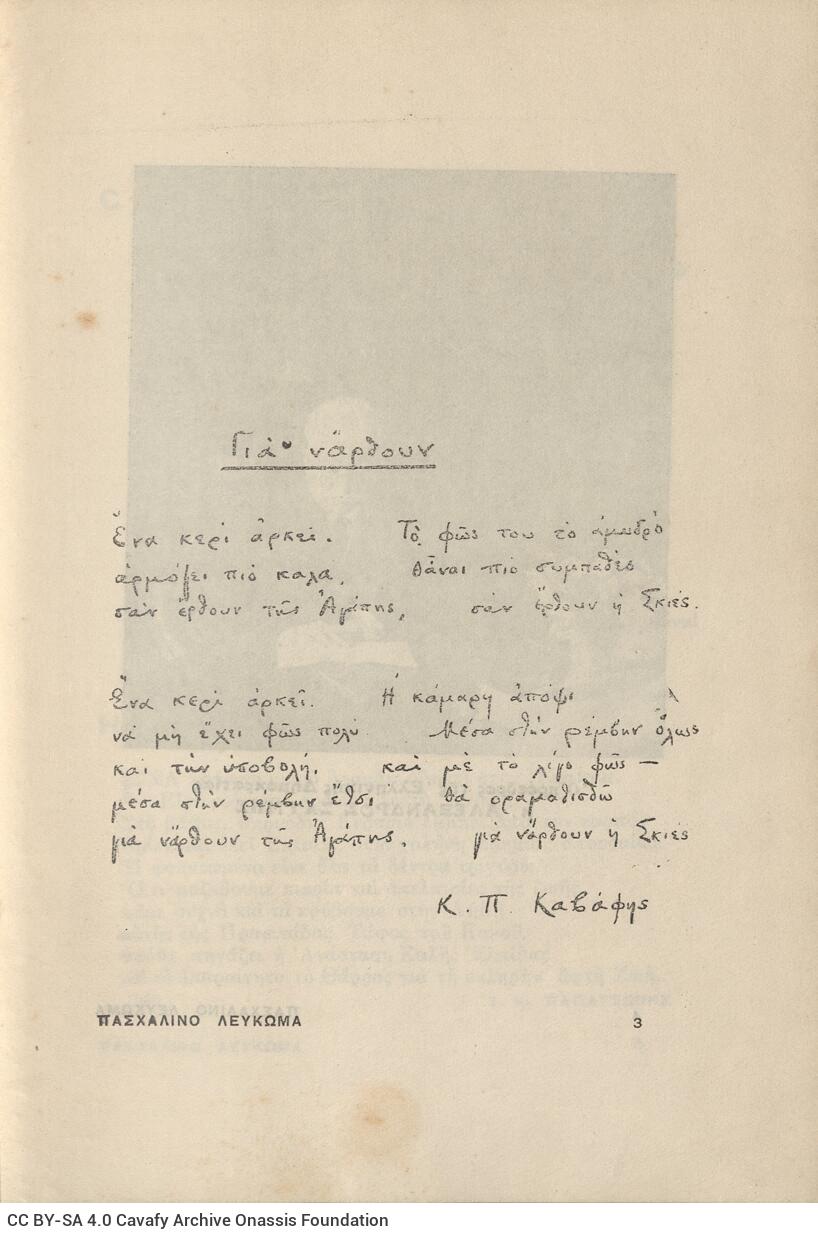 Γιὰ νἄρθουν
Ἕνα κερὶ ἀρκεῖ. Τὸ φῶς του τὸ ἀμυδρὸ
ἁρμόζει πιὸ καλά, θἆναι πιὸ συμπαθὲς
σὰν ἔρθουν τῆς Ἀγάπης, σὰν ἔρθουν ἡ Σκιές.
Ἕνα κερὶ ἀρκεῖ. Ἡ κάμαρη ἀπόψι
νὰ μὴ ἔχει φῶς πολύ. Μέσα στὴν ρέμβην ὅλως
καὶ τὴν ὑποβολή, καὶ μὲ τὸ λίγο φῶς —
μέσα στὴν ρέμβην ἔτσι θὰ ὁραματισθῶ
γιὰ νἄρθουν τῆς Ἀγάπης, γιὰ νἄρθουν ἡ Σκιές
Κ. Π. Καβάφης
ΠΑΣΧΑΛΙΝΟ ΛΕΥΚΩΜΑ 3
CC BY-SA 4.0 Cavafy Archive Onassis Foundation